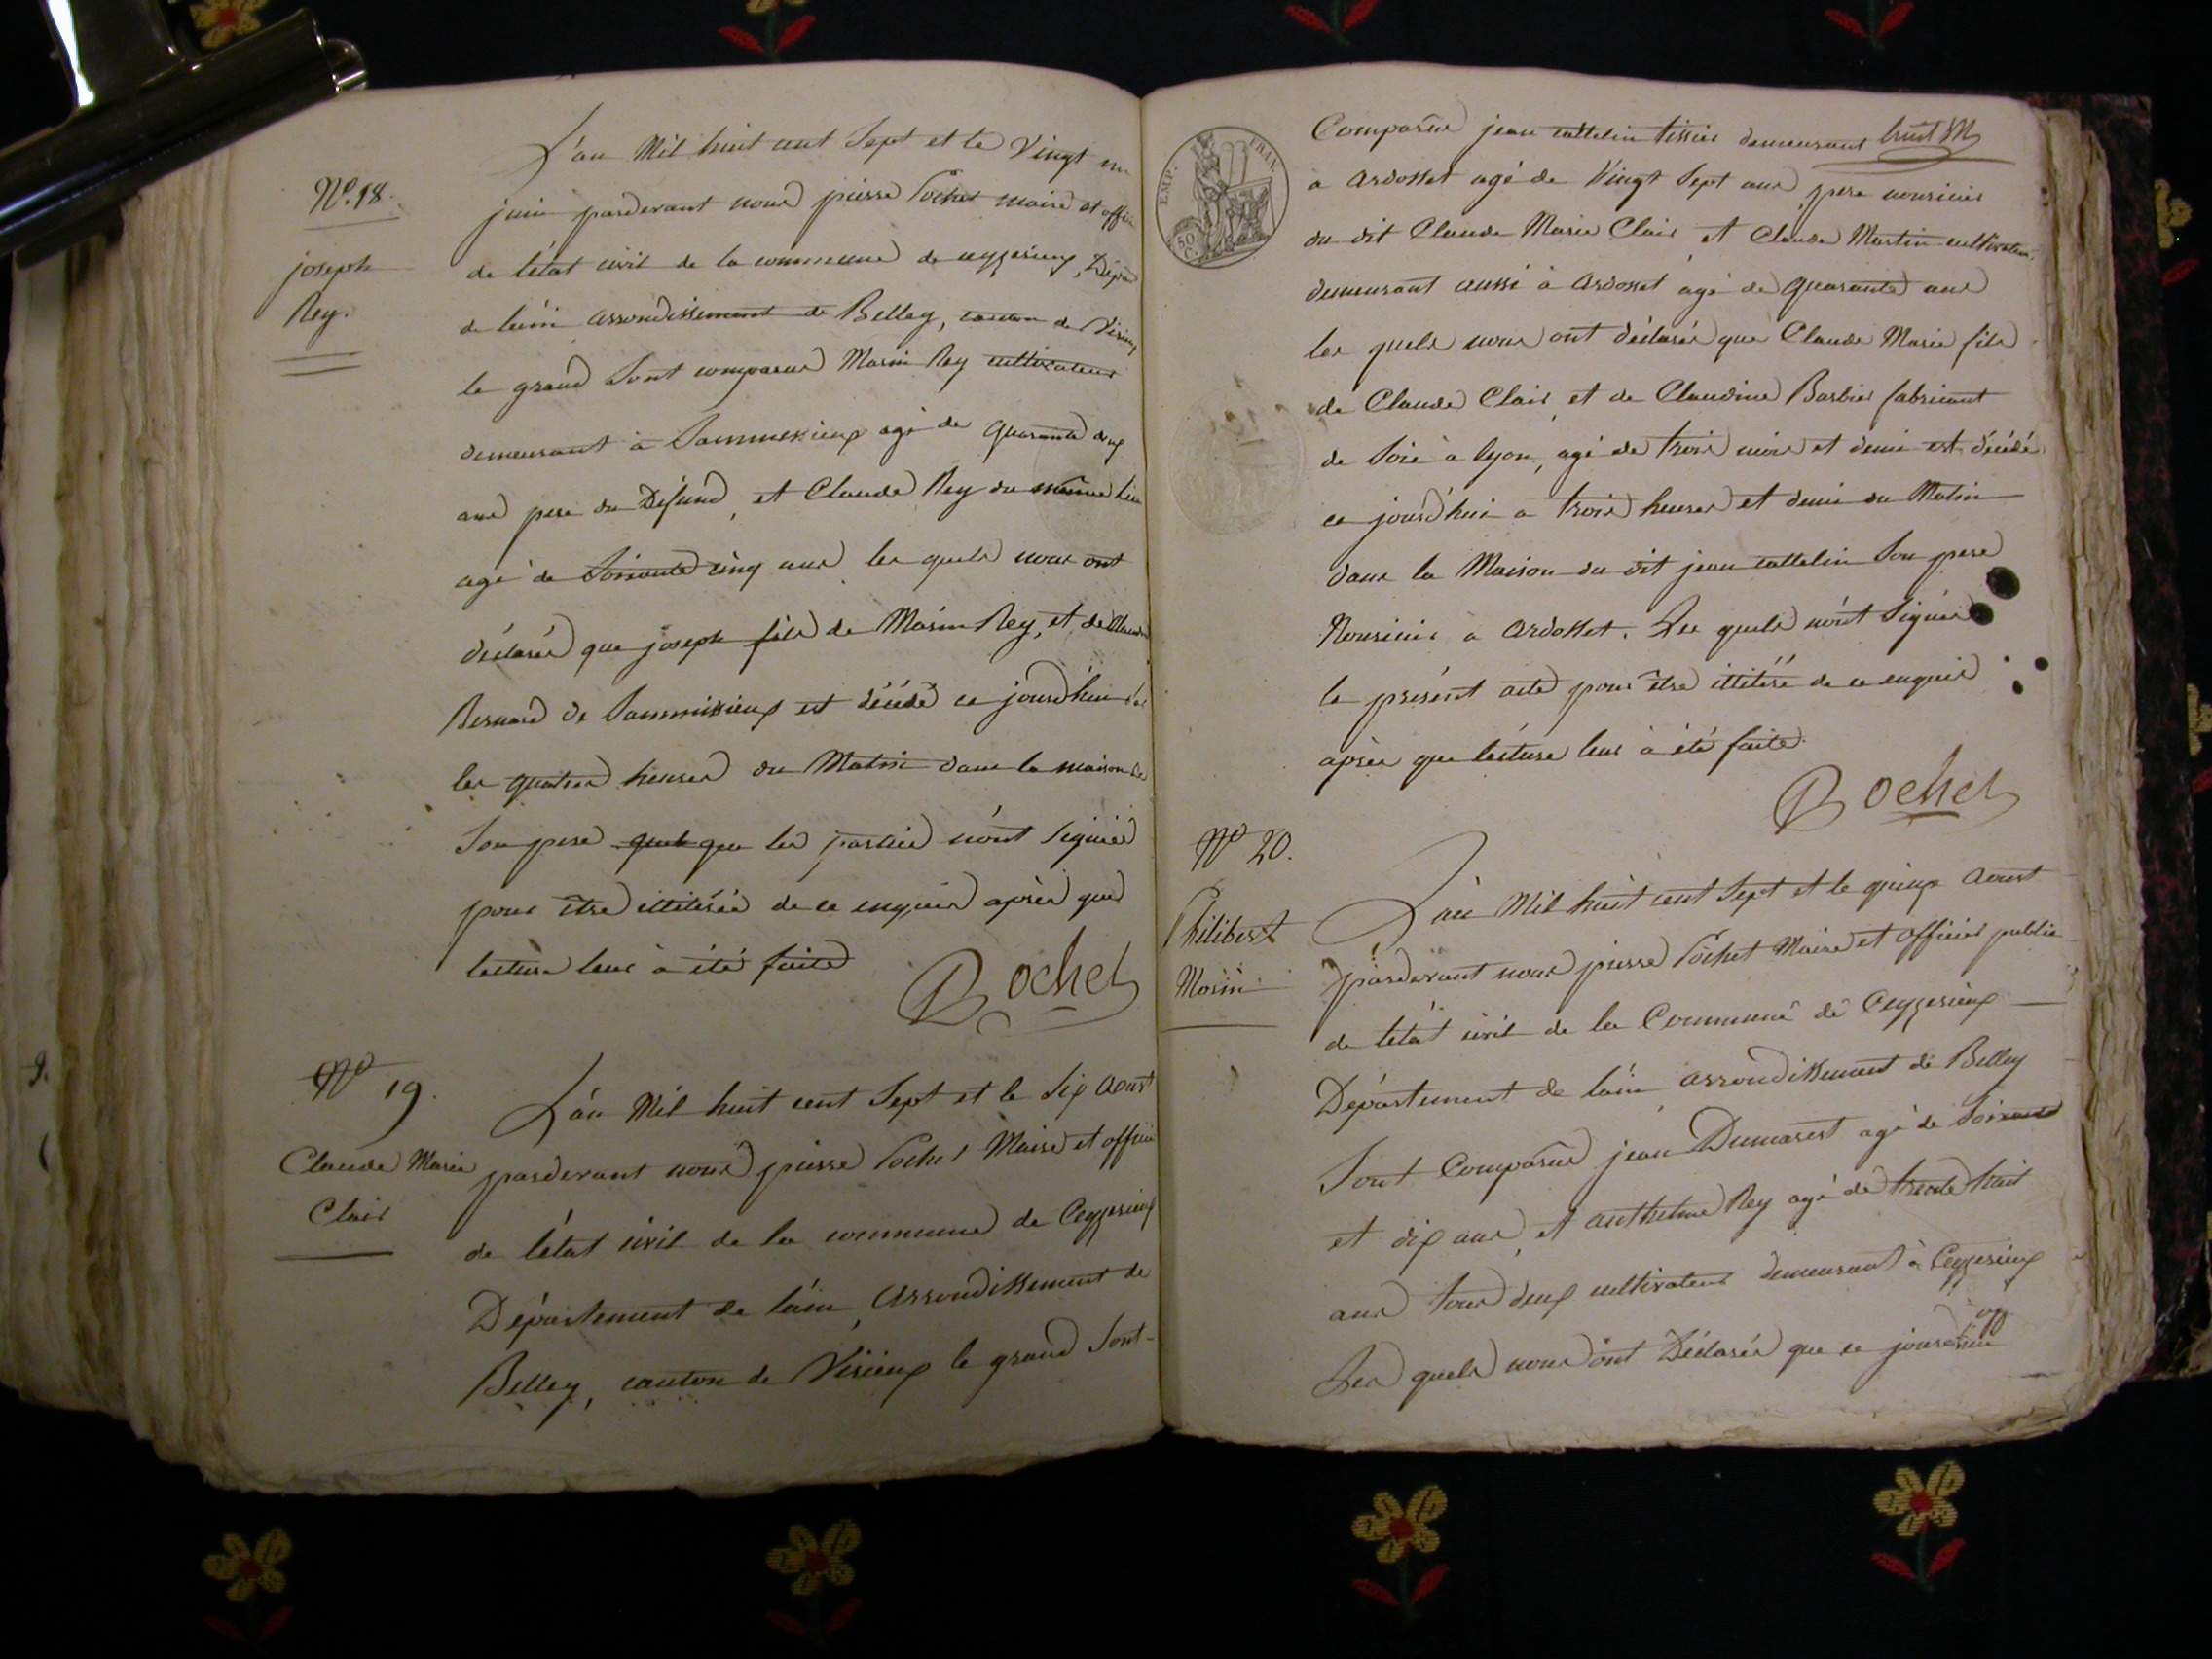 N.o 18.
joseph
Rey.
L'an Mil huit cent Sept et le Vingt
juin pardevant nous pierre Pochet maire et offi
de l'état civil de la commune de ceyzerieux, Dépar
de l'ain arrondissement de Belley, canton de Virieux
le grand Sont comparus Marin Rey cultivateur
demeurant à Sammessieux agé de quarante deux
ans pere du Défund, et Claude Rey du même lieu
agé de Soixante cinq ans les quels nous ont
déclaré que joseph fils de Marin Rey, et de
Bernard de Sammissieux est décédé ce jourd'hui
les quatres heures du Matin dans la maison de
Son pere que les parties n'ont Signées
pour être illiterée de ce enquis après que
lecture leur à été faite
Pochet
N.o 19.
Claude Marie
Clair
L'an Mil huit cent Sept et le Six Aoust
pardevant nous pierre Pochet Maire et officie
de l'état civil de la commune de Ceyzerieux
Département de l'ain, Arrondissement de
Belley, canton de Virieux le grand Sont-
9.
EMP. FRAN.
50 C.
Comparus jean cattelin tissier demeurant
a Ardosset agé de Vingt Sept ans pere nouricier
du dit Claude Marie Clair et Claude Martin cultivateur
demeurant aussi à Ardosset agé de quarante ans
les quels nous ont déclarés que Claude Marie fils
de Claude Clair et de Claudine Barbier fabricant
de Soie à lyon, agé de trois mois et demi est décédé
ce jourd'hui a trois heures et demi du Matin
dans la Maison du dit jean cattelin Son pere
Nouricier a Ardosset. Les quels n'ont Signés
le présent acte pour être illitéré de ce enquis
après que lecture leur à été faite.
Pochet
N.o 20.
Philibert
Morin
L'an Mil huit cent Sept et le quinx Aoust
pardevant nous pierre Pochet Maire et officier public
de l'état civil de la Commune de Ceyzerieux
Département de l'ain arrondissement de Belley
Sont Comparus jean Dumarest agé de Soixante
et dix ans, et anthelme Rey agé de trente huit
ans tous deux cultivateur demeurant à Ceyzerieux
Les quels nous ont Déclarés que ce jourd'hui